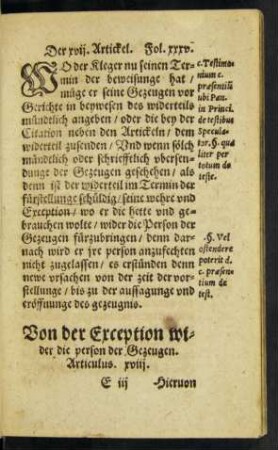 Der xvij. Artickel. Fol. xxxv.
WO der Kleger nu seinen Ter-
min der beweisunge hat /
müge er seine Gezeugen vor
Gerichte in beywesen des widerteils
mündelich angeben / oder die bey der
Citation neben den Artickeln / dem
widerteil zusenden / Vnd wenn sölch
mündelich oder schrieffelich vbersen-
dunge der Gezeugen geschehen / als
denn ist der widerteil im Termin der
fürstellunge schüldig / seine wehre vnd
Exception / wo er die hette vnd ge-
brauchen wolte / wider die Person der
Gezeugen fürzubringen / denn dar-
nach wird er jre person anzufechten
nicht zugelassen / es erstünden denn
newe vrsachen von der zeit der vor-
stellunge / bis zu der aussagunge vnd
eröffnunge des gezeugnis.
c. Testimo-
nium c.
præsentiũ
ubi Pan.
in Princi.
de testibus
Specula-
tor. §. qua
liter per
totum de
teste.
§. Vel
ostendere
poterit d.
c. præsen-
tium de
test.
Von der Exception wi-
der die person der Gezeugen.
Articulus. xviij.
E iij Hieruon